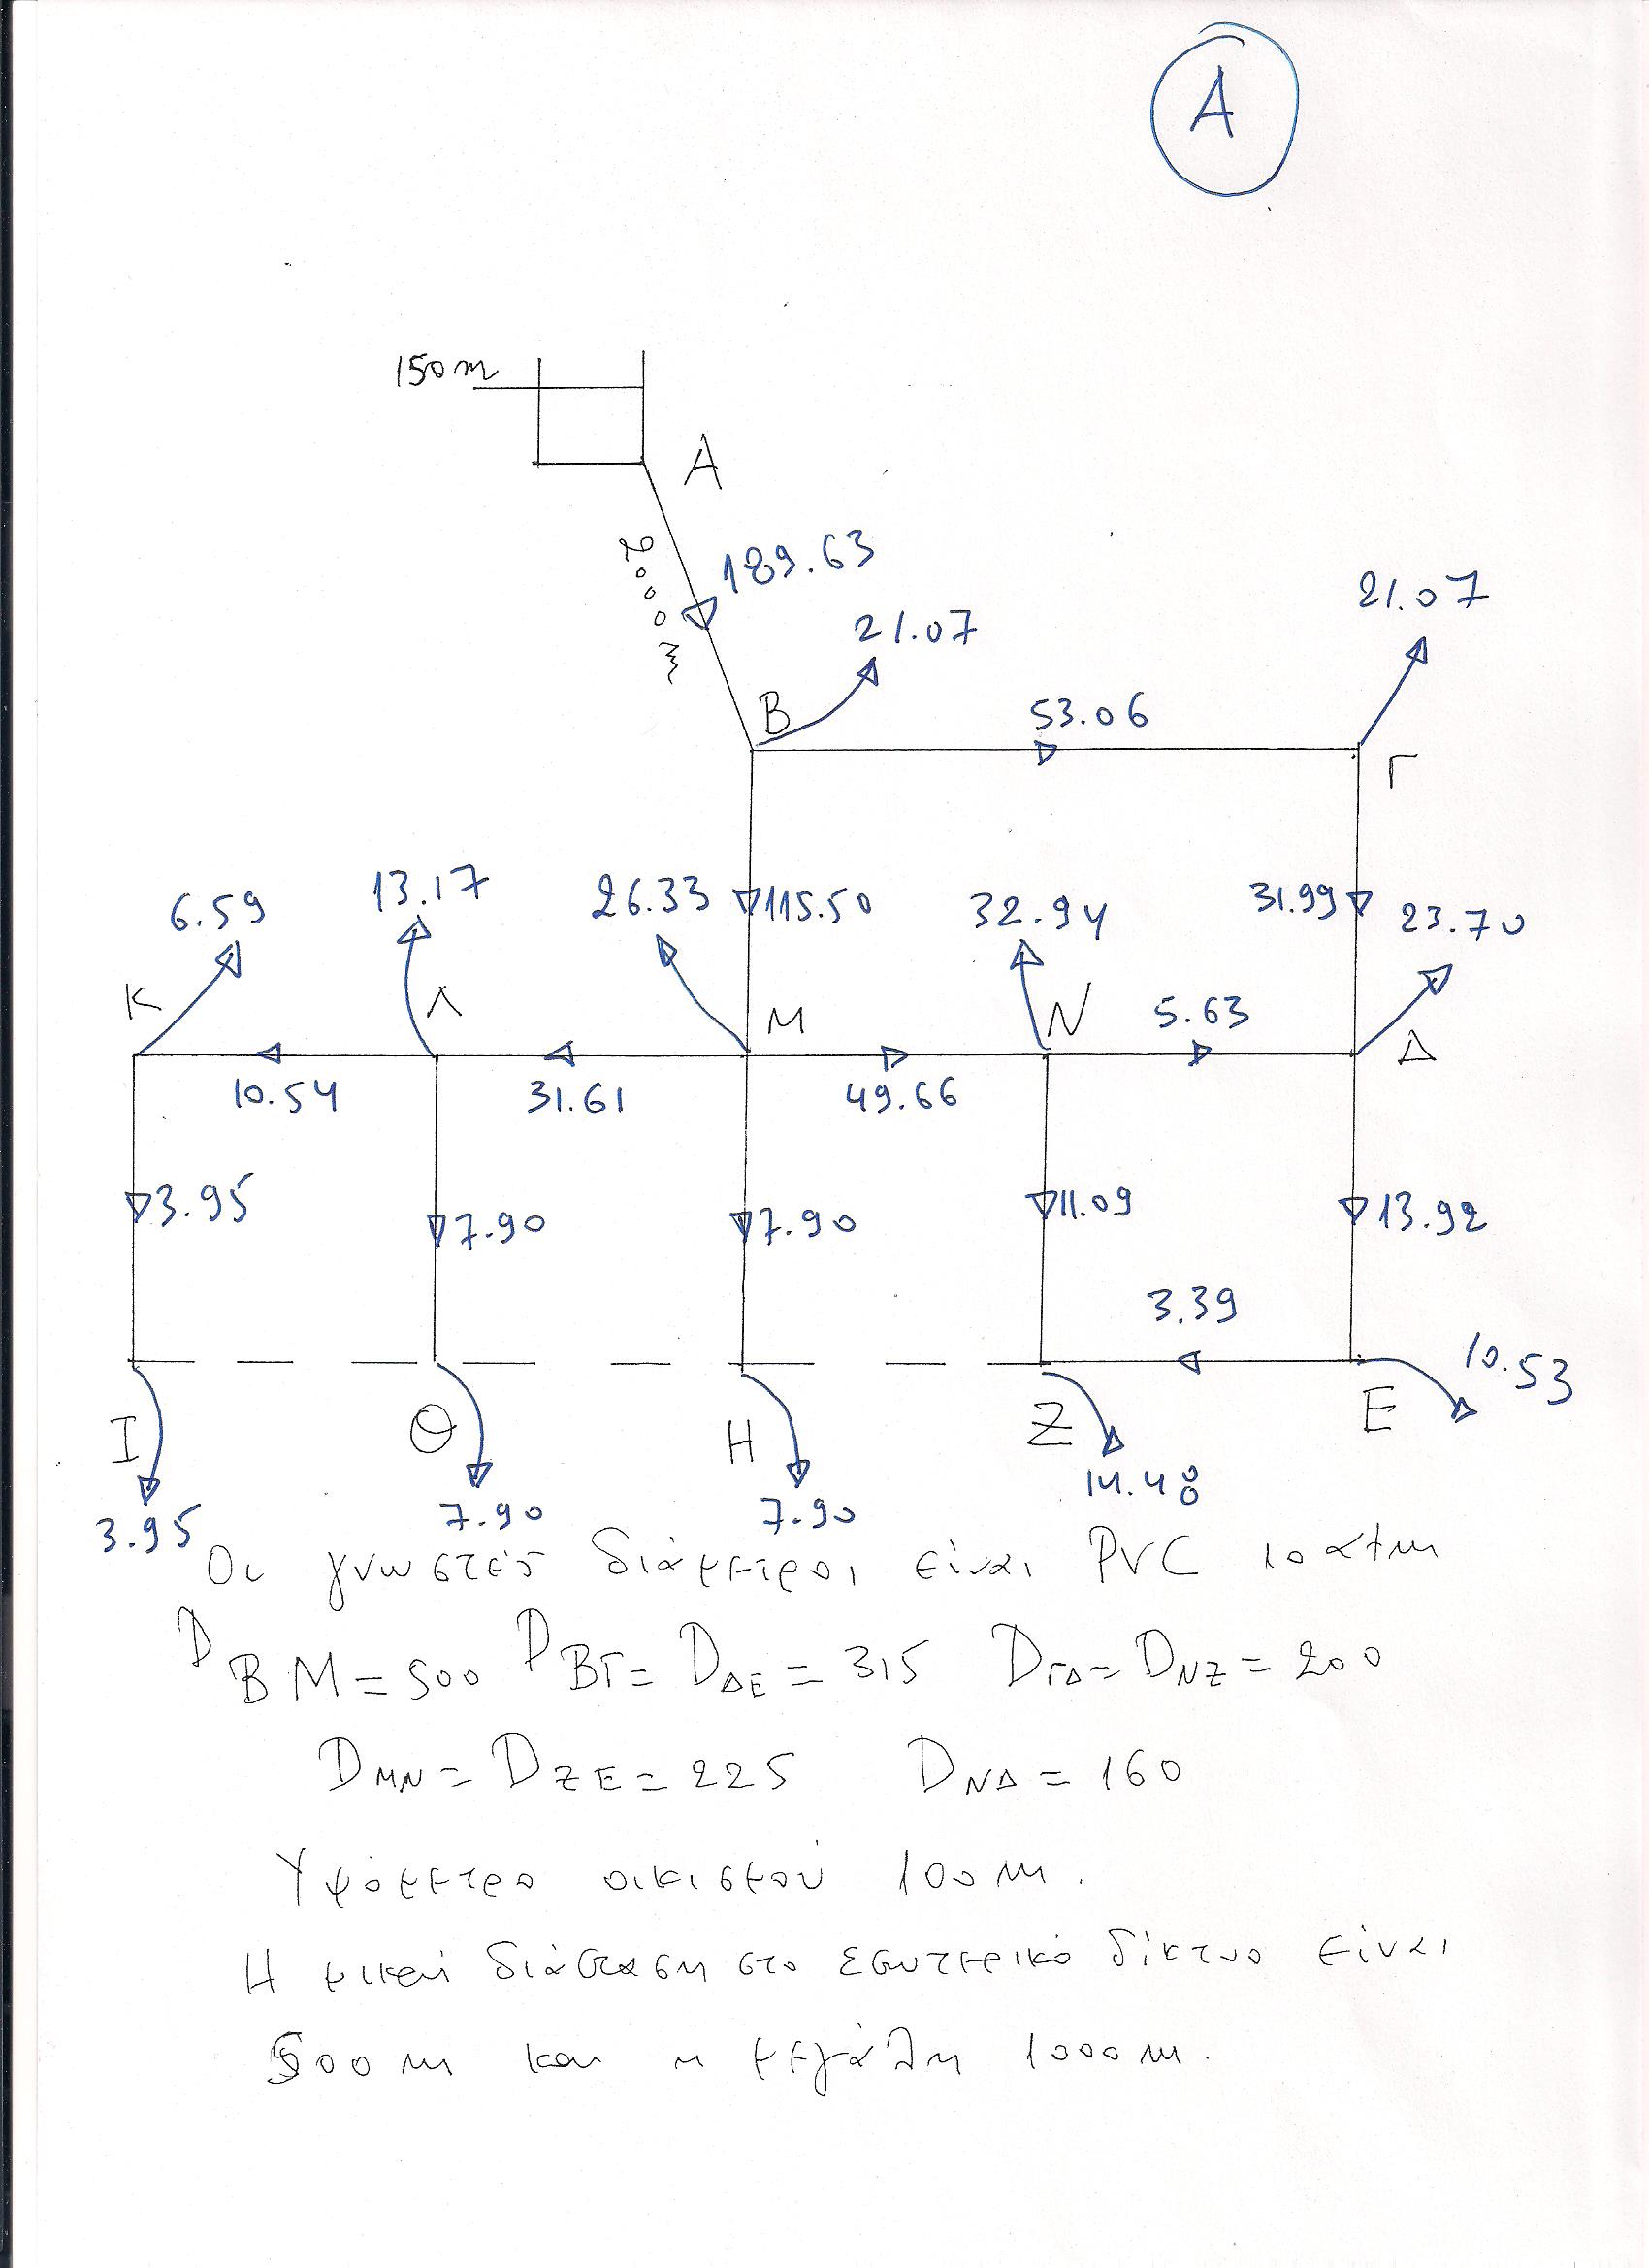 A
150m
A
2000m
189.63
21.07
21.07
B
53.06
Γ
6.59
13.17
26.33
115.50
32.94
31.99
23.70
K
Λ
M
N
5.63
Δ
10.54
31.61
49.66
3.95
7.90
7.90
11.09
13.92
3.39
10.53
I
Θ
H
Z
E
3.95
7.90
7.90
14.48
Οι γνωστές διάμετροι είναι PVC 10 atm
D BM = 500 D BΓ = D ΔE = 315 D ΓΔ = D NZ = 200
D MN = D ZE = 225 D NΔ = 160
Υψόμετρο οικισμού 100 m.
Η μικρή διάσταση στο εσωτερικό δίκτυο είναι
500 m και η μεγάλη 1000 m.